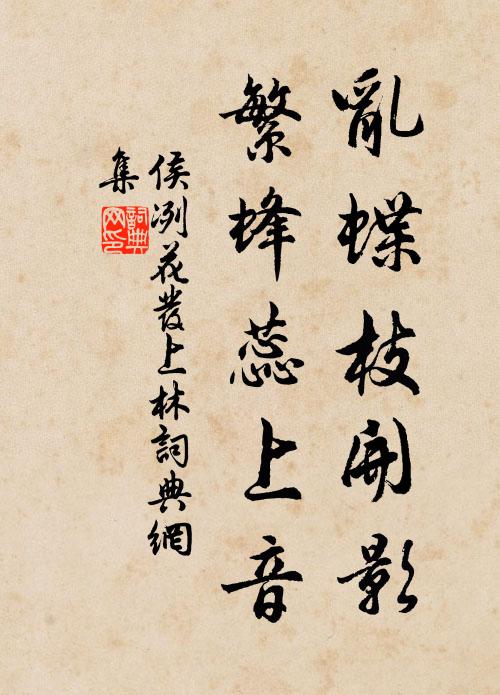 亂蝶枝開影
繁蜂蕊上音
侯冽花發上林詞典網
集
詞典
网印